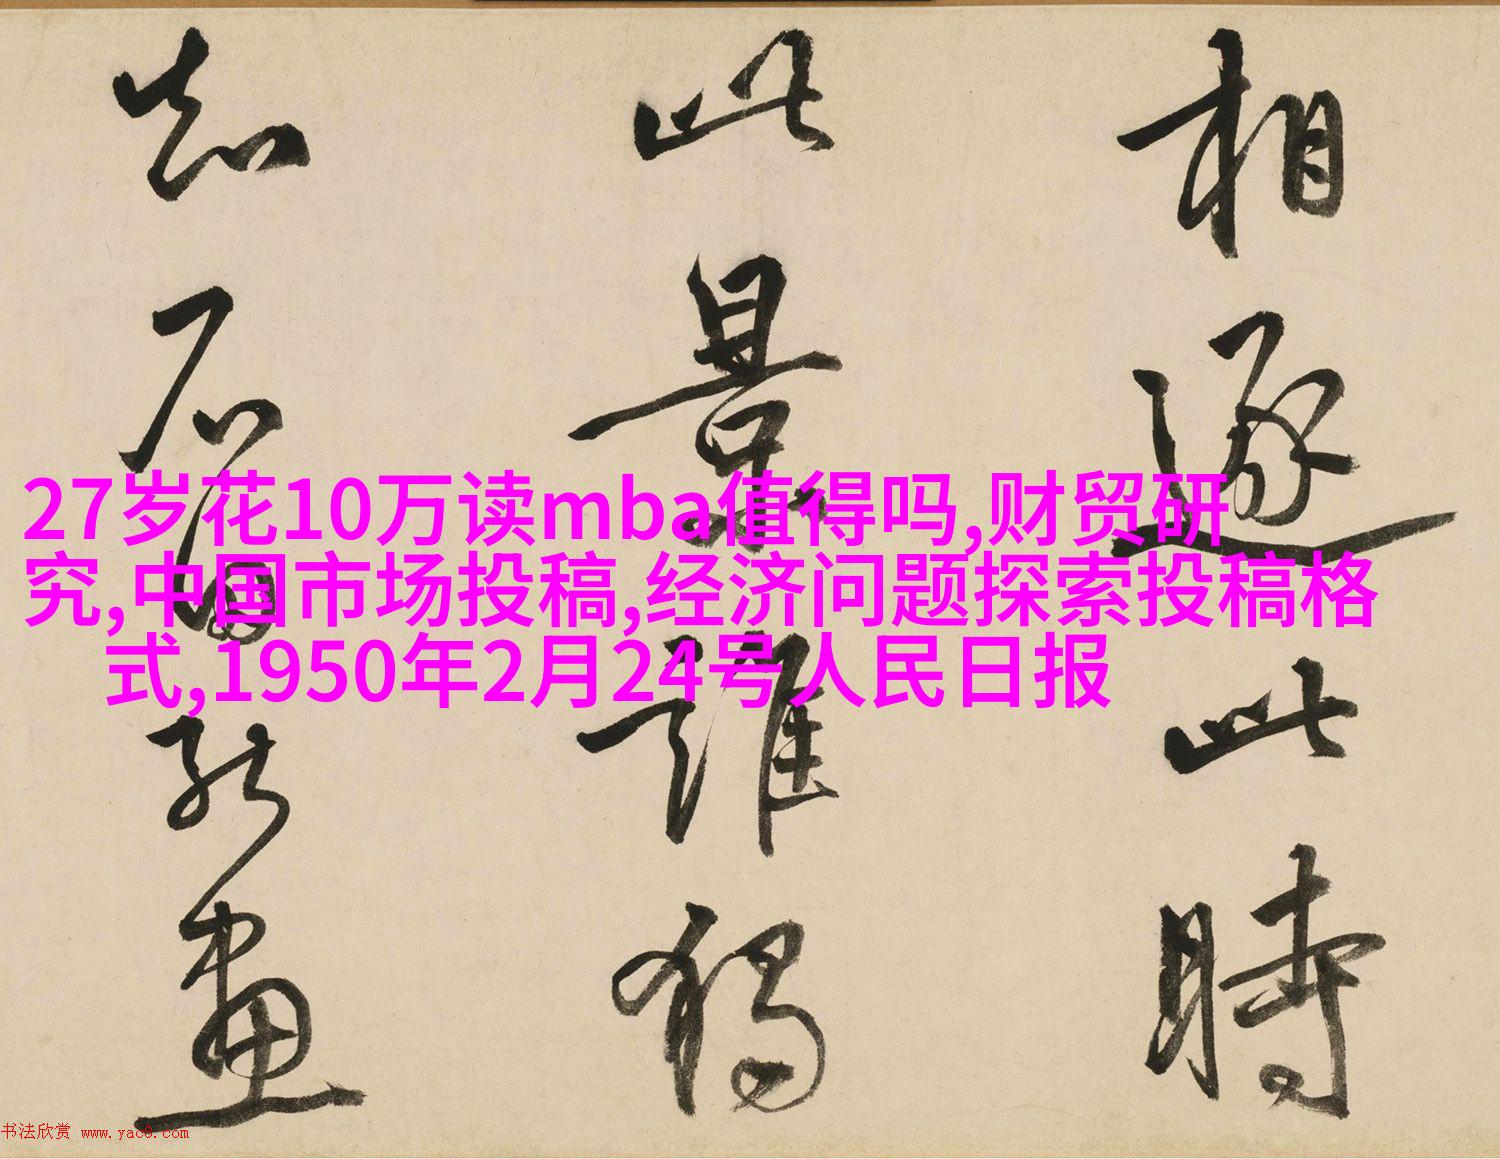 相逐此時
此景誰獨
知石能畫
27岁花10万读mba值得吗,财贸研
究,中国市场投稿,经济问题探索投稿格
式,1950年2月24号人民日报
书法欣赏 www.yac8.com